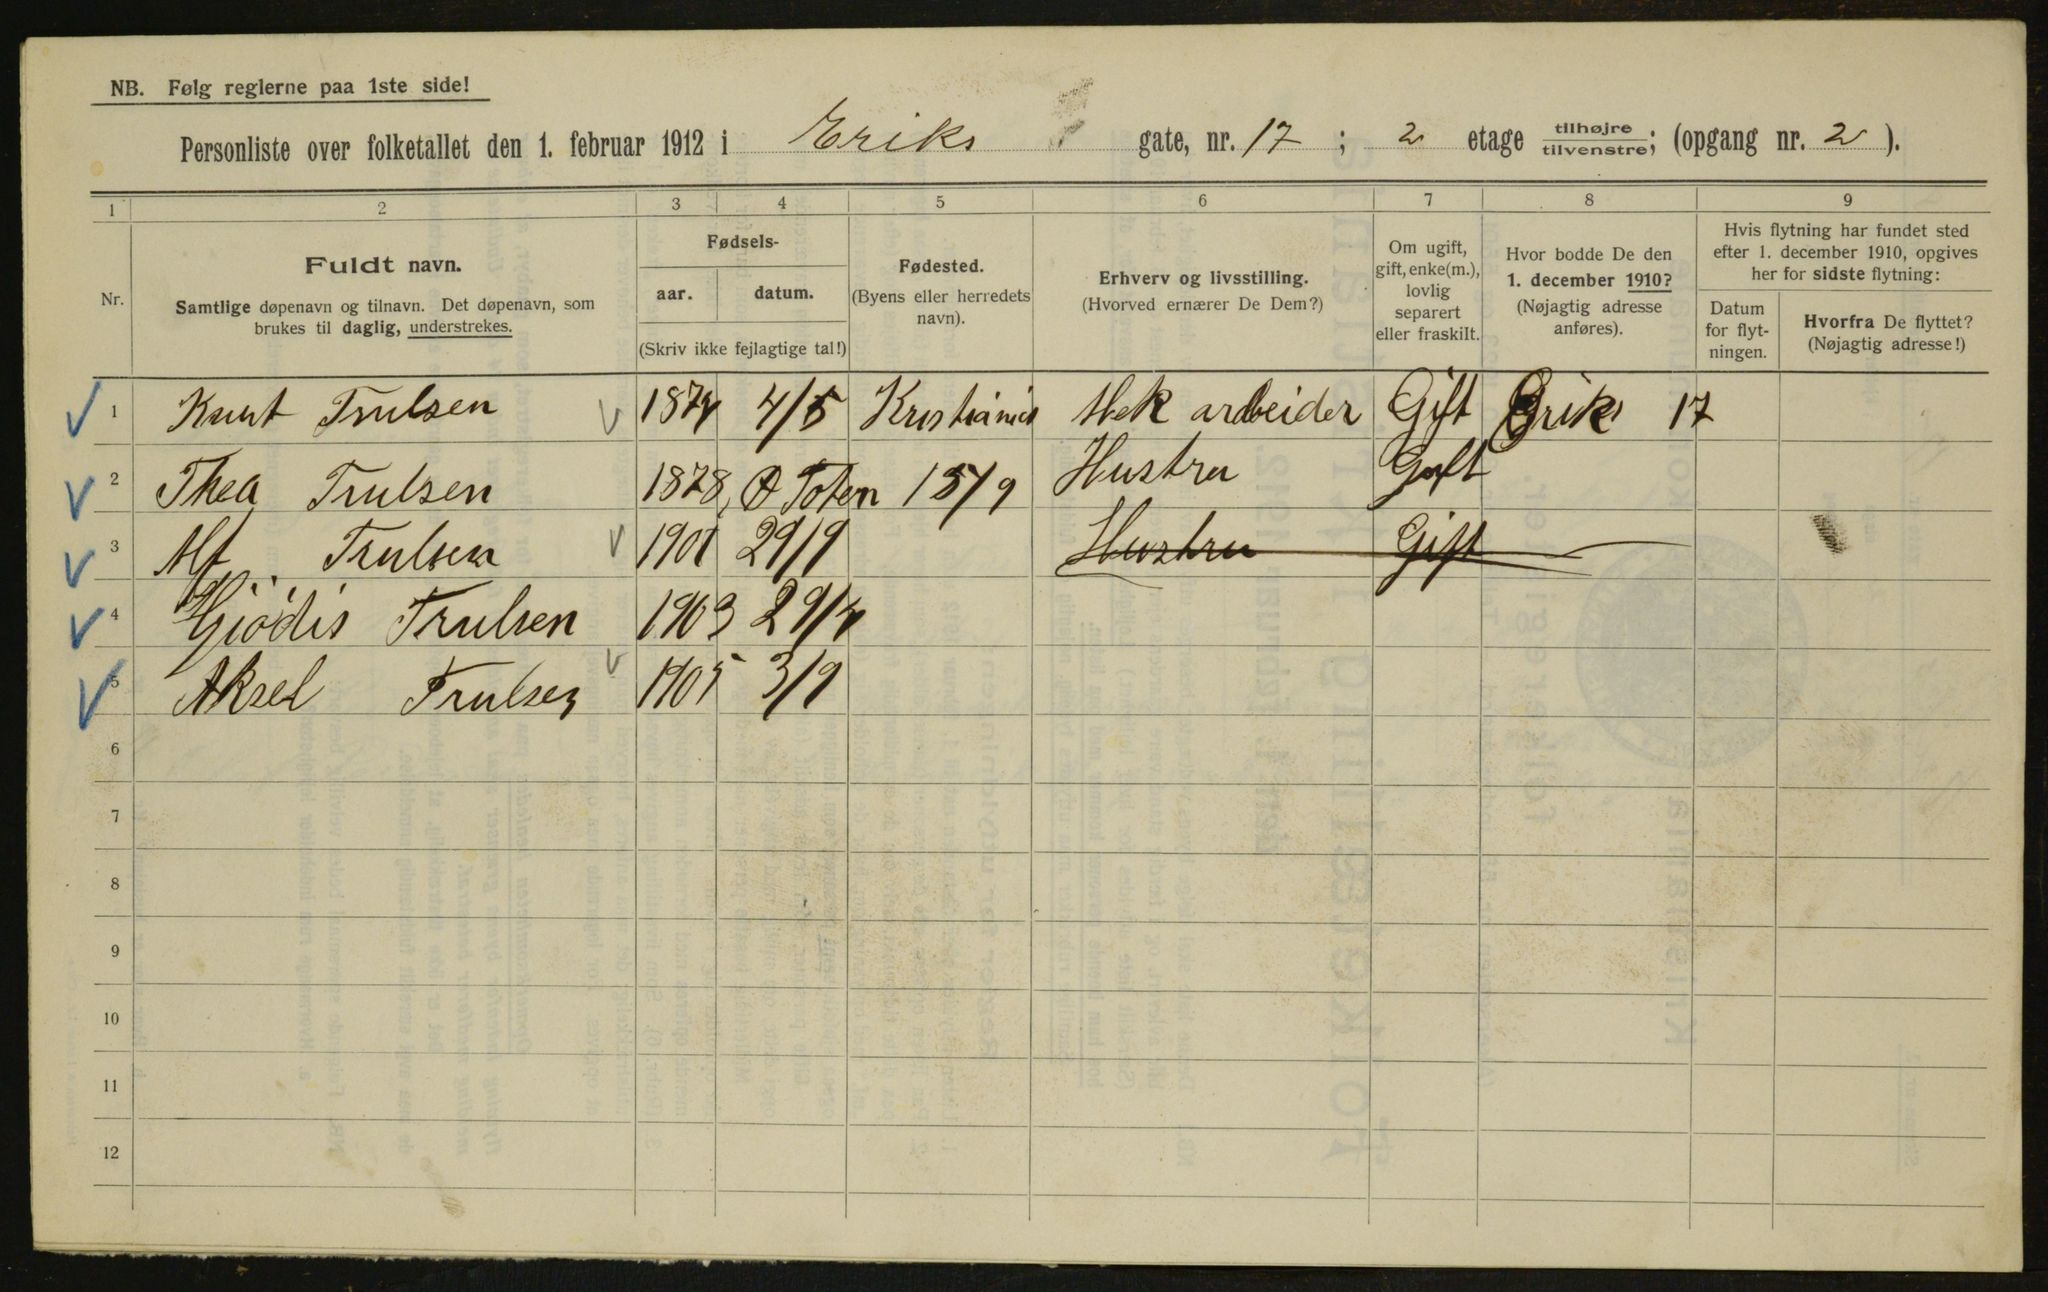 NB. Følg reglerne paa 1ste side!
Personliste over folketallet den 1. februar 1912 i Eriks gate, nr. 17; 2 etage tilhøjre tilvenstre; (opgang nr. 2).
1 2 3 4 5 6 7 8 9
Nr.
Fuldt navn.
Samtlige døpenavn og tilnavn. Det døpenavn, som
brukes til daglig, understrekes.
Fødsels-
aar. datum.
(Skriv ikke fejlagtige tal!)
Fødested.
(Byens eller herredets
navn).
Erhverv og livsstilling.
(Hvorved ernærer De Dem?)
Om ugift,
gift, enke(m.),
lovlig
separert
eller fraskilt.
Hvor bodde De den
1. december 1910?
(Nøjagtig adresse
anføres).
Hvis flytning har fundet sted
efter 1. december 1910, opgives
her for sidste flytning:
Datum
for flyt-
ningen.
Hvorfra De flyttet?
(Nøjagtig adresse!)
1 Knut Trulsen 4/5 Kristiania Mek arbeider Gift Eriks 17
2 Thea Trulsen 1878 Ø Toten 15/9 Hustru Gift
3 Alf Trulsen 1901 29/9 Hustru Gift
4 Hjødis Trulsen 1903 29/4
5 Aksel Trulsen 1905 3/9
6
7
8
9
10
11
12